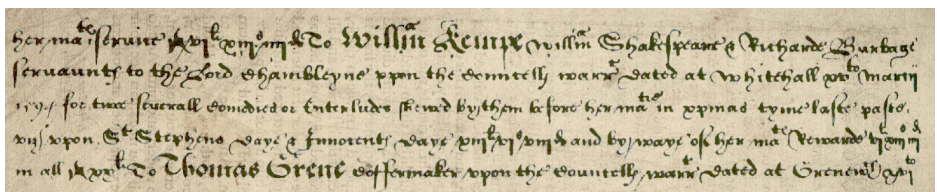 her ma^te service To Willm Kempe Willm Shakespeare & Richarde Burbage
servaunts to the Lord Chambleyne vpon the Councells warr^t dated at Whitehall xv^to Marcij
1594 for twoe severall Comedies or Enterludes shewed by them before her ma^tie in xpmas tyme laste paste
viz vpon S^t Stephens daye & Innocents daye xiij^li vj^s viij^d and by waye of her ma^te Rewarde
in all xx^li To Thomas Grene Coffermaker vpon the Councells warr^t dated at Grenew^ch xvj^to